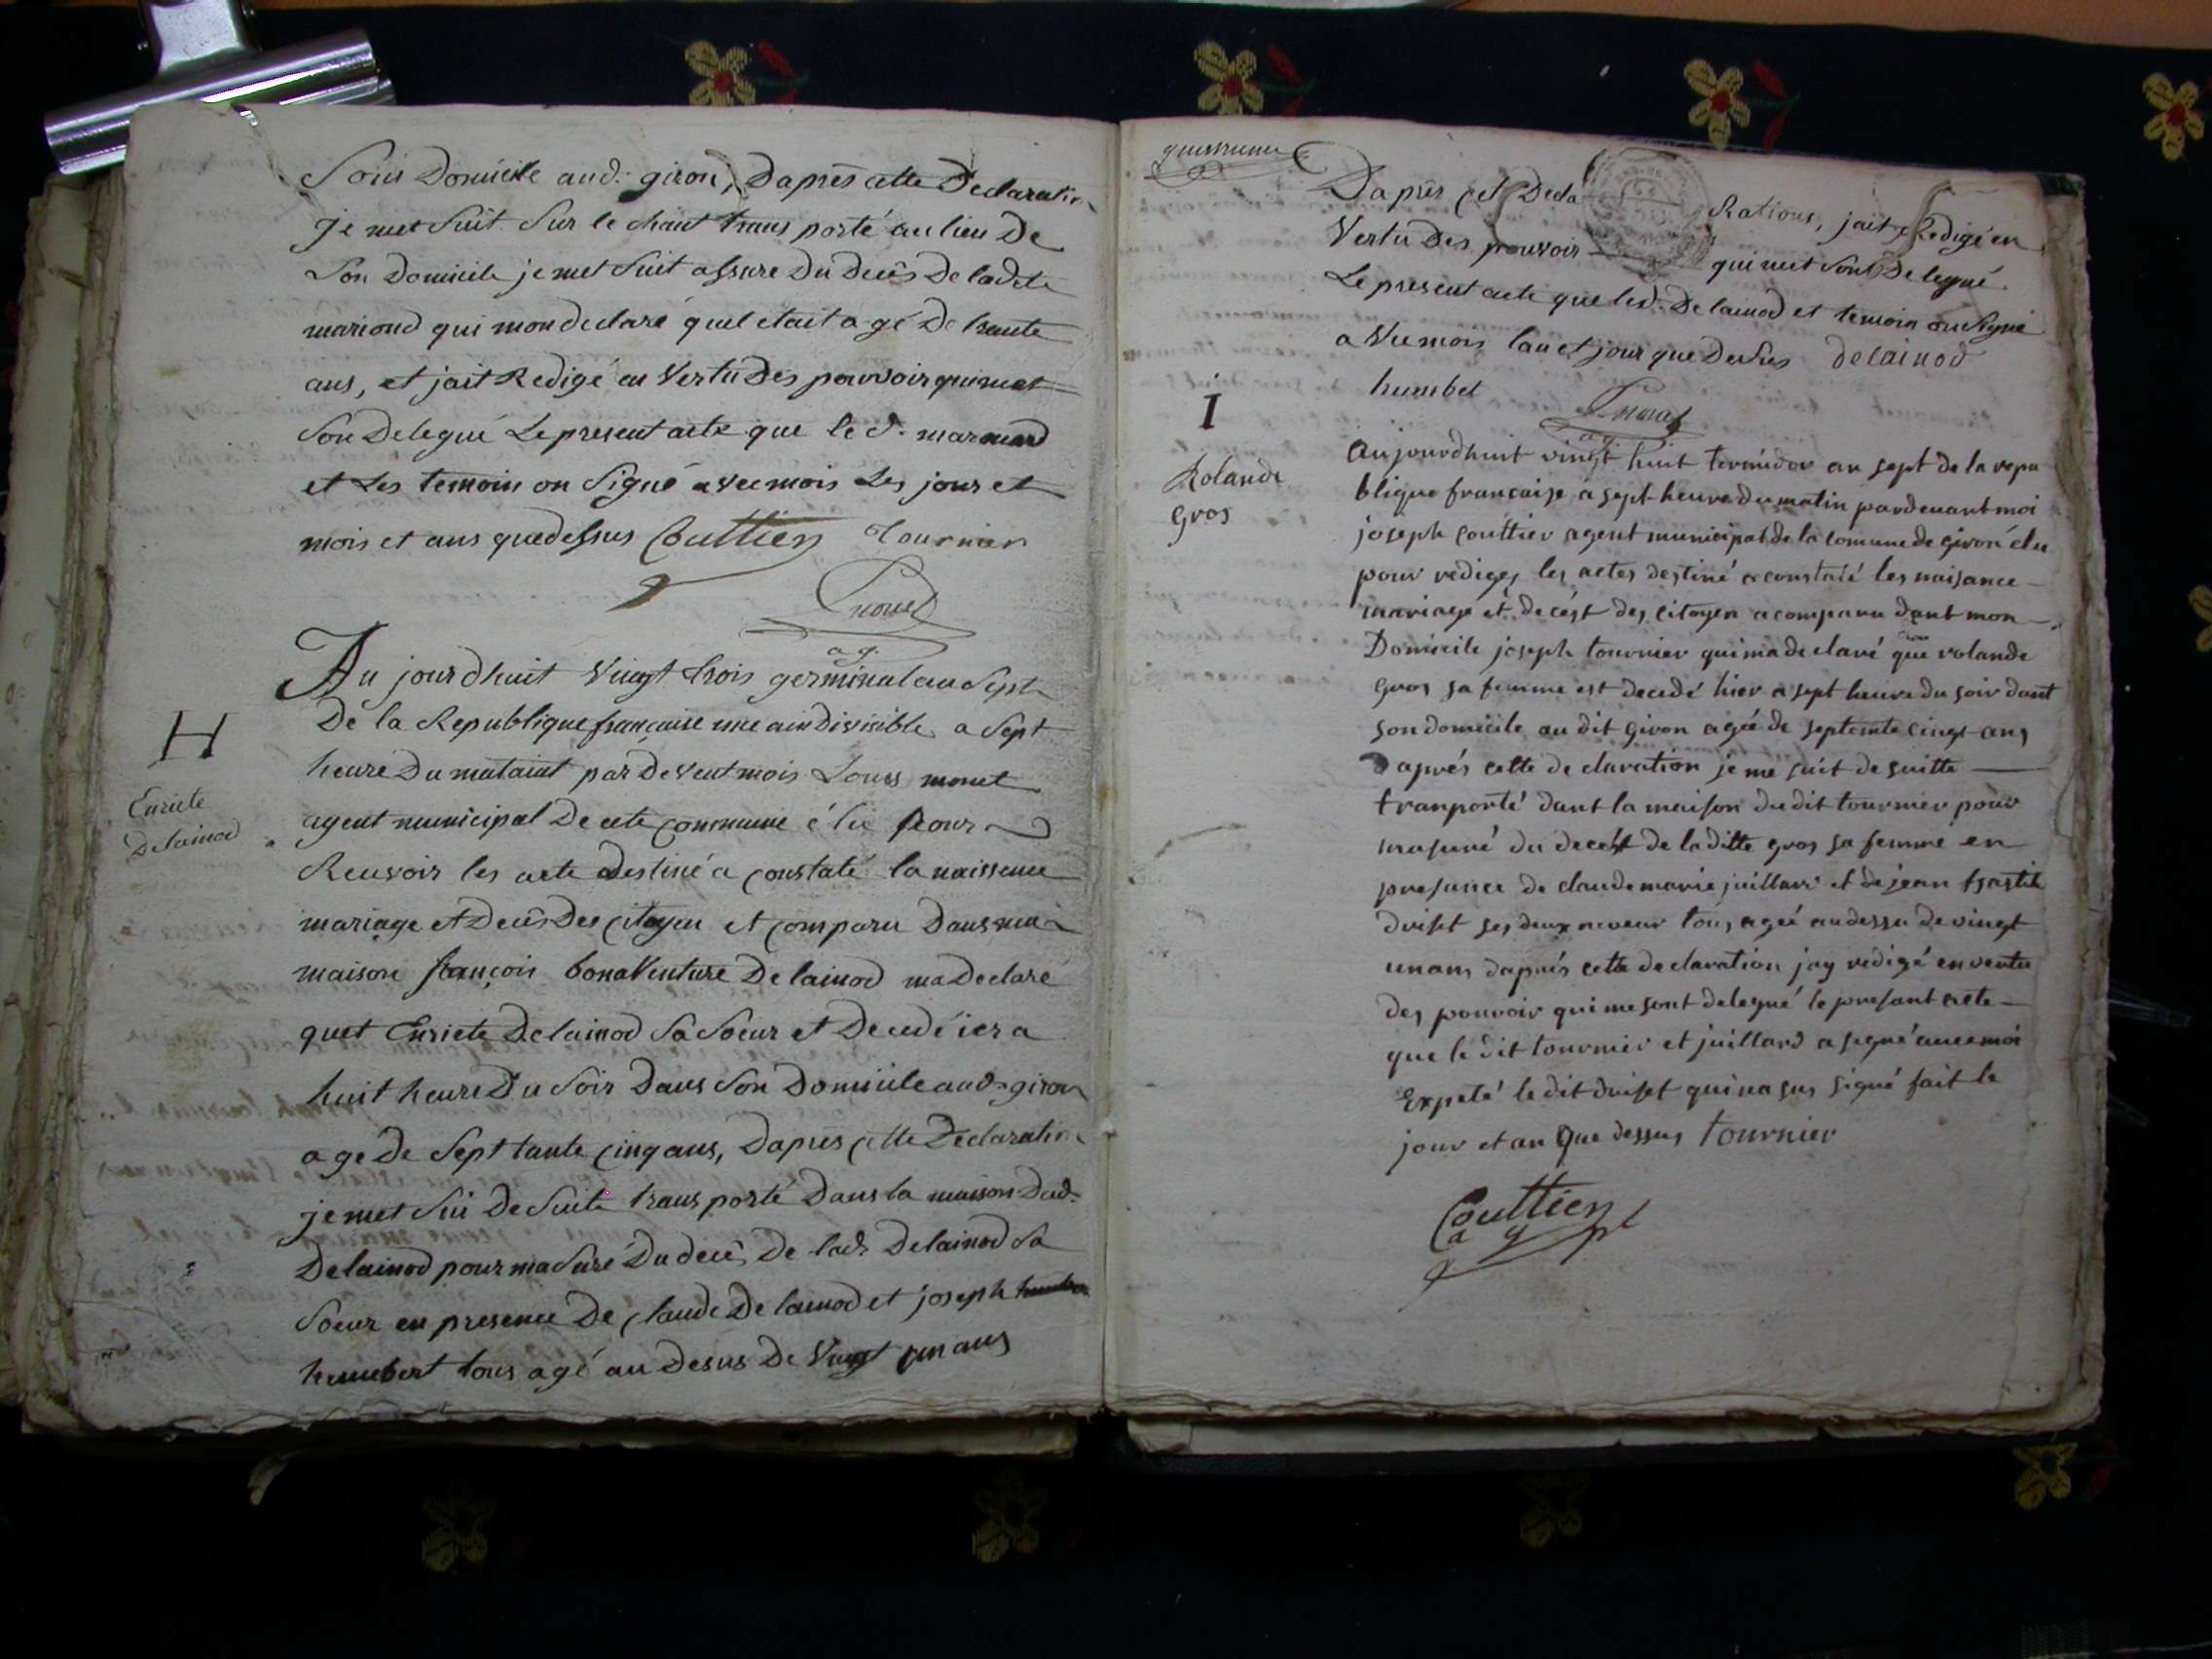 Soir Domicile aud. giron, Daprès cette Declaration
Je met Suit Sur le chant transporté au lieu De
Son Domicile je met Suit assuré Du Decès De ladete
mariond qui mon declaré quel etait agé De trante
ans, et jait Redigé en Vertu Des pouvoir qui met
Son Delegué Le present acte que le d. marmard
et Les temoin on Signé avec mois Les jour et
mois et ans que dessus Couttier Tournier
monet
ag.
Au jourdhuit Vingt trois germinal an Sept
H
De la Republique française une aindivisible a Sept
heure Du mataint par Devent mois Louis monet
Enriete
Delainod
agent municipal De cete Commune élu pour
Recevoir les acte Destiné a Constaté la naissence
mariage et Decès Des Citoyen et Comparu Dans ma
maison françois bonaventure Delainod ma Declaré
quet Enriete Delainod Sa Soeur et Decedé ier a
huit heure Du Soir Dans Son Domicile aud. giron
age De Sept tante Cinq ans, Daprès Cette Declaration
je met Sui De Suite transporté Dans la maison Dud.
Delainod pour masuré Du decè De lad. Delainod Sa
Soeur en presence De Claude Delainod et joseph
humbert tous agé au Desus De Vingt un ans
Daprès Cet Decla Rations, jait Redigé en
Vertu Des pouvoir qui met Sont Delegué
Le present acte que led. Delainod et temoin on Signé
avec mois lan et jour que Desus delainod
humbet
monet
ag.
I
Rolande
gros
aujourdhuit vingt huit termidor an sept de la repu
blique francaise a sept heure du matin pardevant moi
joseph Couttier agent municipal de la comune de giron élu
pour rediger les actes destiné a constaté les naisance
mariage et decést des citoyen a comparu dant mon
Domicile joseph tournier qui ma declaré que rolande
gros sa femme est decedé hier a sept heure du soir dant
son domicile au dit giron agée de septente cinqt ans
d aprés cette declaration je me suit de suitte
tranporté dant la maison dudit tournier pour
masuré du decést de laditte gros sa femme en
presance de claude marie juillard et de jean
ses deux neveur tous ageé audessu de vingt
un ans daprés cette declaration jay rédigé en vertu
des pouvoir qui me sont delegué le presant acte
que le dit tournier et juillard a segné avec moi
Expeté le dit qui na sus signé fait le
jour et an que dessus tournier
Couttier
ag